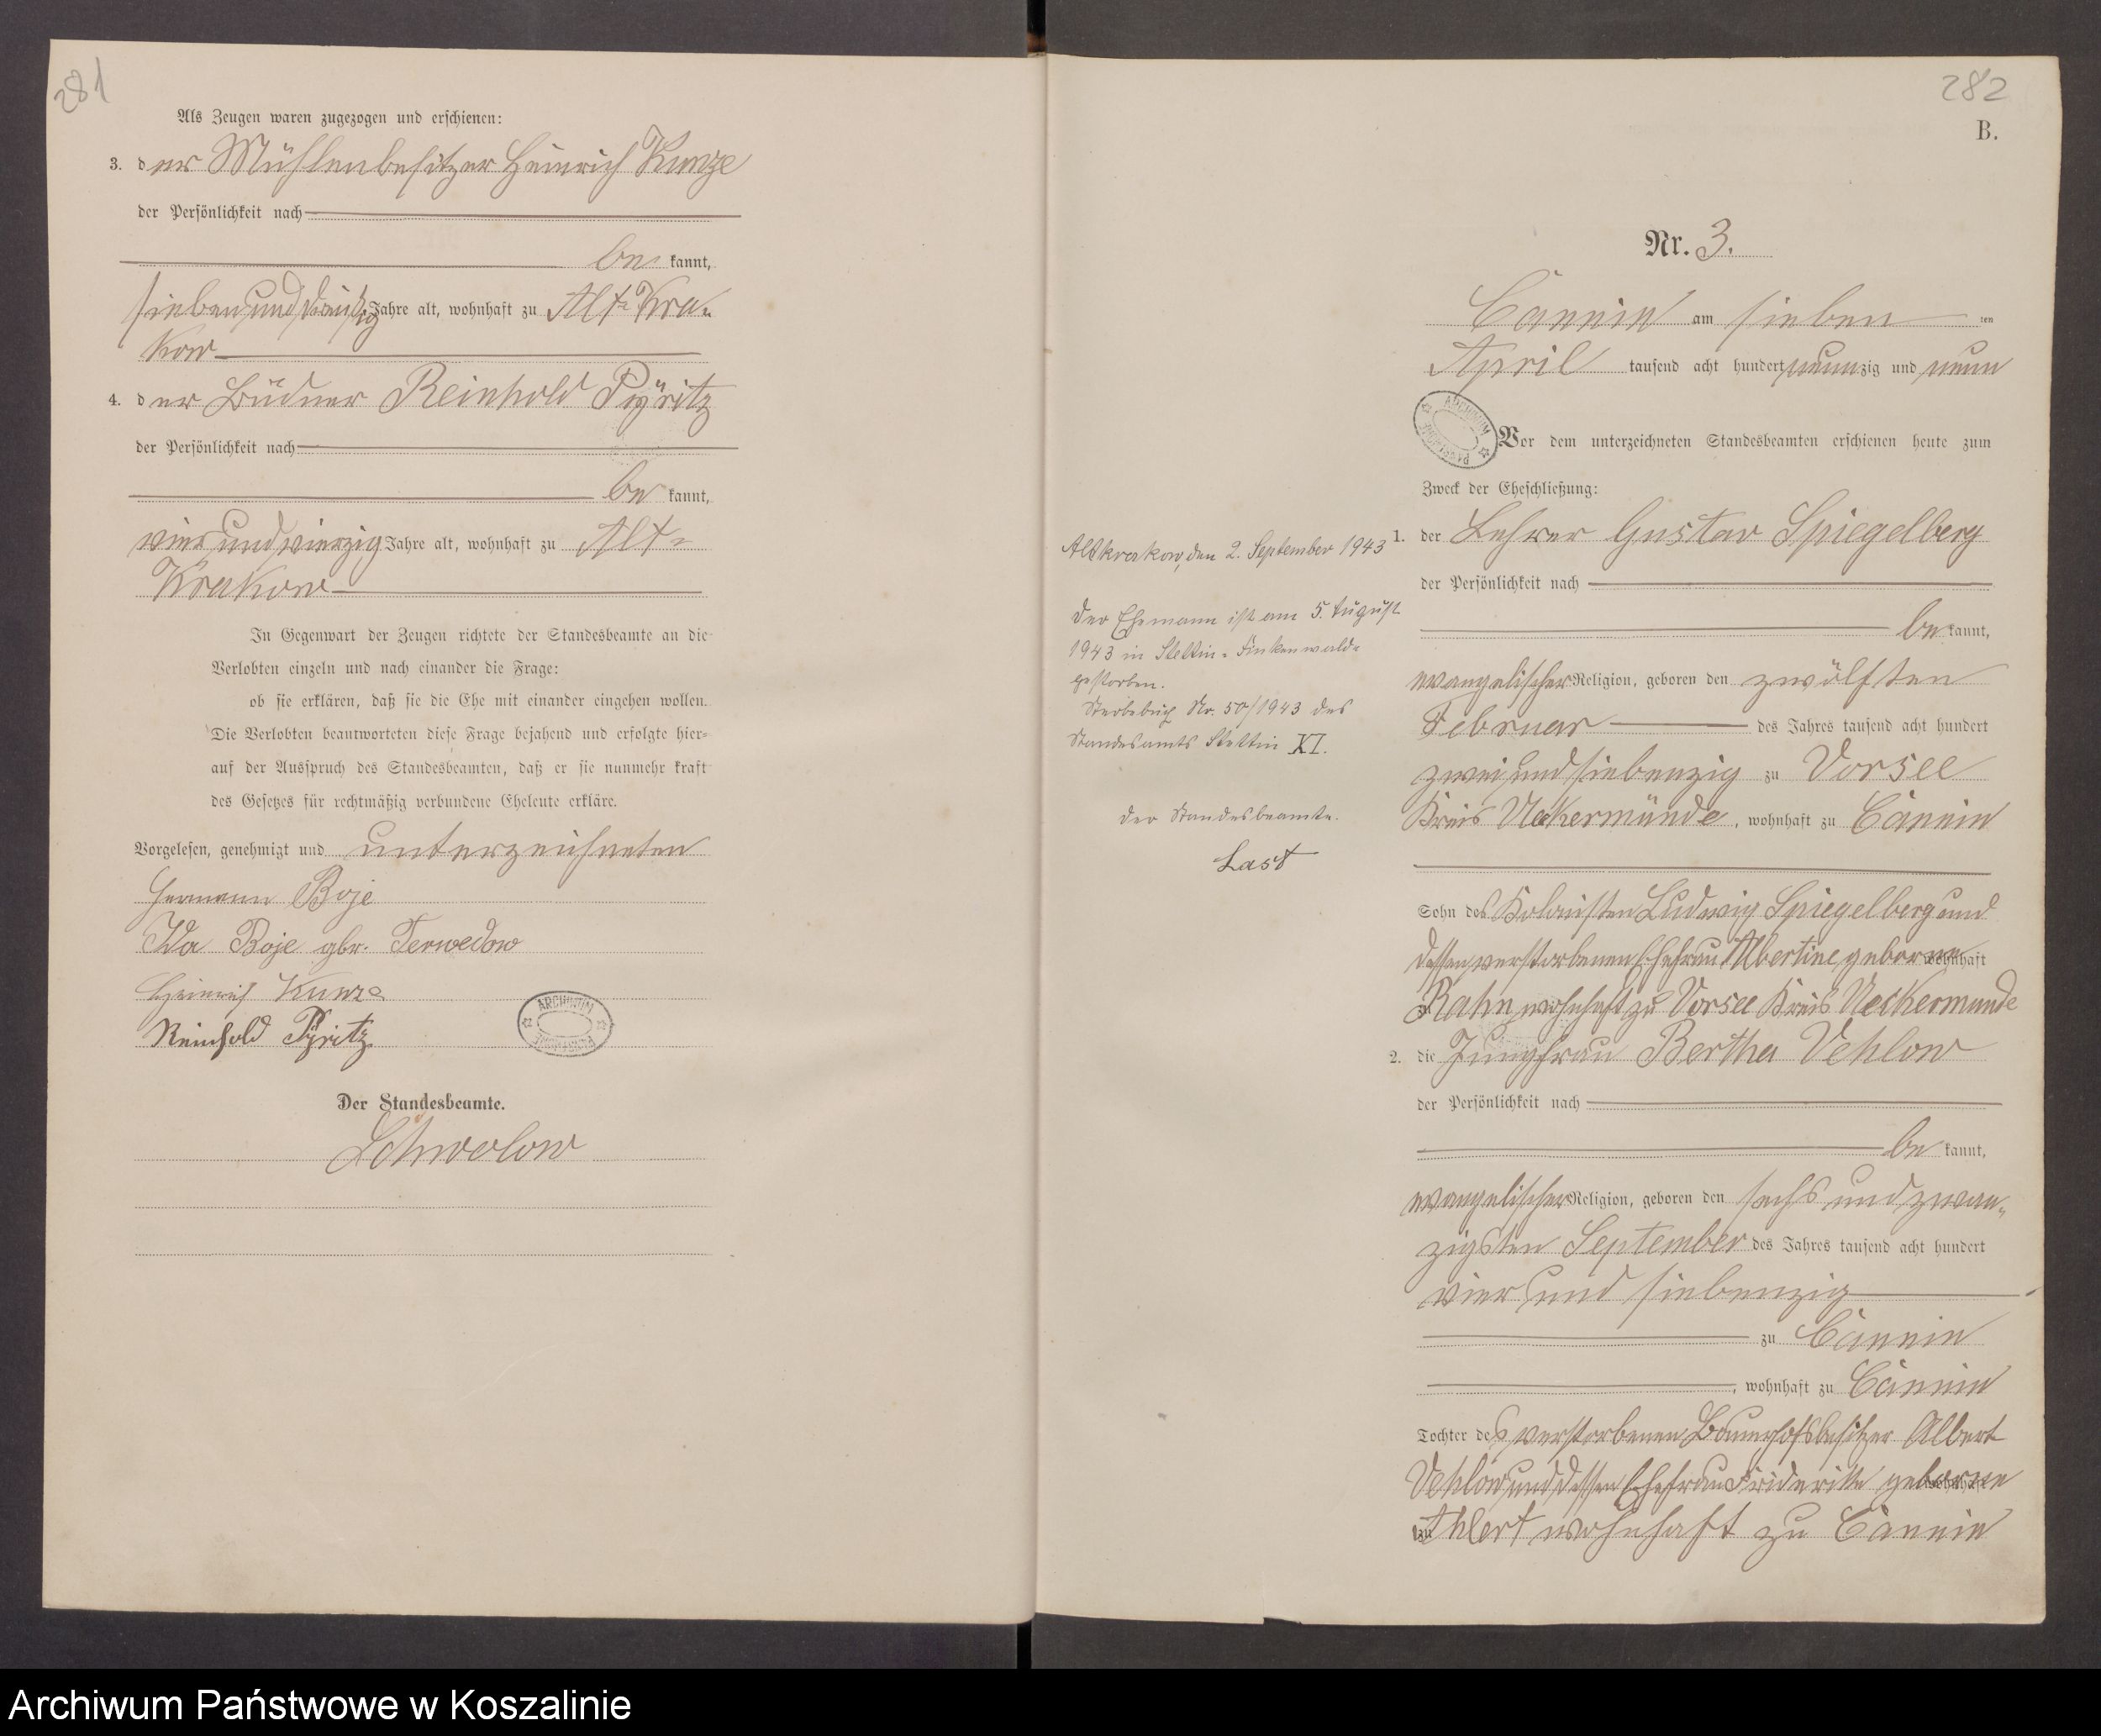 281
Als Zeugen waren zugezogen und erschienen:
3. der Mühlenbesitzer Heinrich Kunze
der Persönlichkeit nach
be kannt,
sieben und dreißig Jahre alt, wohnhaft zu Alt-Kra-
kow
4. der Büdner Reinhold Pyritz
der Persönlichkeit nach
be kannt,
vier und vierzig Jahre alt, wohnhaft zu Alt-
Krakow
In Gegenwart der Zeugen richtete der Standesbeamte an die
Verlobten einzeln und nach einander die Frage:
ob sie erklären, daß sie die Ehe mit einander eingehen wollen.
Die Verlobten beantworteten diese Frage bejahend und erfolgte hier-
auf der Ausspruch des Standesbeamten, daß er sie nunmehr kraft
des Gesetzes für rechtmäßig verbundene Eheleute erkläre.
Vorgelesen, genehmigt und unterzeichneten
Hermann Boje
Ida Boje gbr. Terwedow
Heinrich Kunze
Reinhold Pyritz
ARCHIWUM
Der Standesbeamte.
282
B.
Nr. 3.
Cannin am sieben ten
April tausend acht hundert neunzig und neun
ARCHIWUM
Vor dem unterzeichneten Standesbeamten erschienen heute zum
Zweck der Eheschließung:
1. der Lehrer Gustav Spiegelberg
der Persönlichkeit nach
be kannt,
evangelischer Religion, geboren den zwölften
Februar des Jahres tausend acht hundert
zwei und siebenzig zu Vorsee
Kreis Ueckermünde, wohnhaft zu Cannin
Sohn des Kolonisten Ludwig Spiegelberg und
dessen verstorbenen Ehefrau Albertine geborene wohnhaft
zu Rahn wohnhaft zu Vorsee Kreis Ueckermünde
2. die Jungfrau Bertha Vehlow
der Persönlichkeit nach
be kannt,
evangelischer Religion, geboren den sechs und zwan-
zigsten September des Jahres tausend acht hundert
vier und siebenzig
zu Cannin
, wohnhaft zu Cannin
Tochter des verstorbenen Bauerhofsbesitzer Albert
Vehlow und dessen Ehefrau Friderike geborne
zu Ahlert wohnhaft zu Cannin
Altkrakow, den 2. September 1943
Der Ehemann ist am 5. August
1943 in Stettin-Finkenwalde
gestorben.
Sterbebuch Nr. 50/1943 des
Standesamts Stettin XI.
Der Standesbeamte.
Last
Archiwum Państwowe w Koszalinie